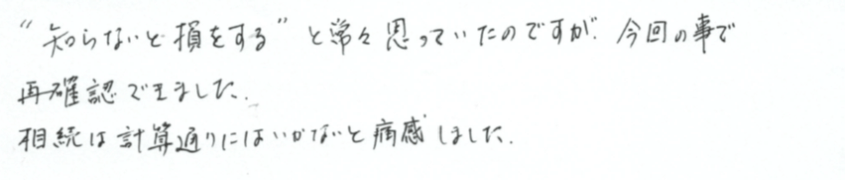 “知らないと損をする”と常々思っていたのですが、今回の事で
再確認できました。
相続は計算通りにはいかないと痛感しました。